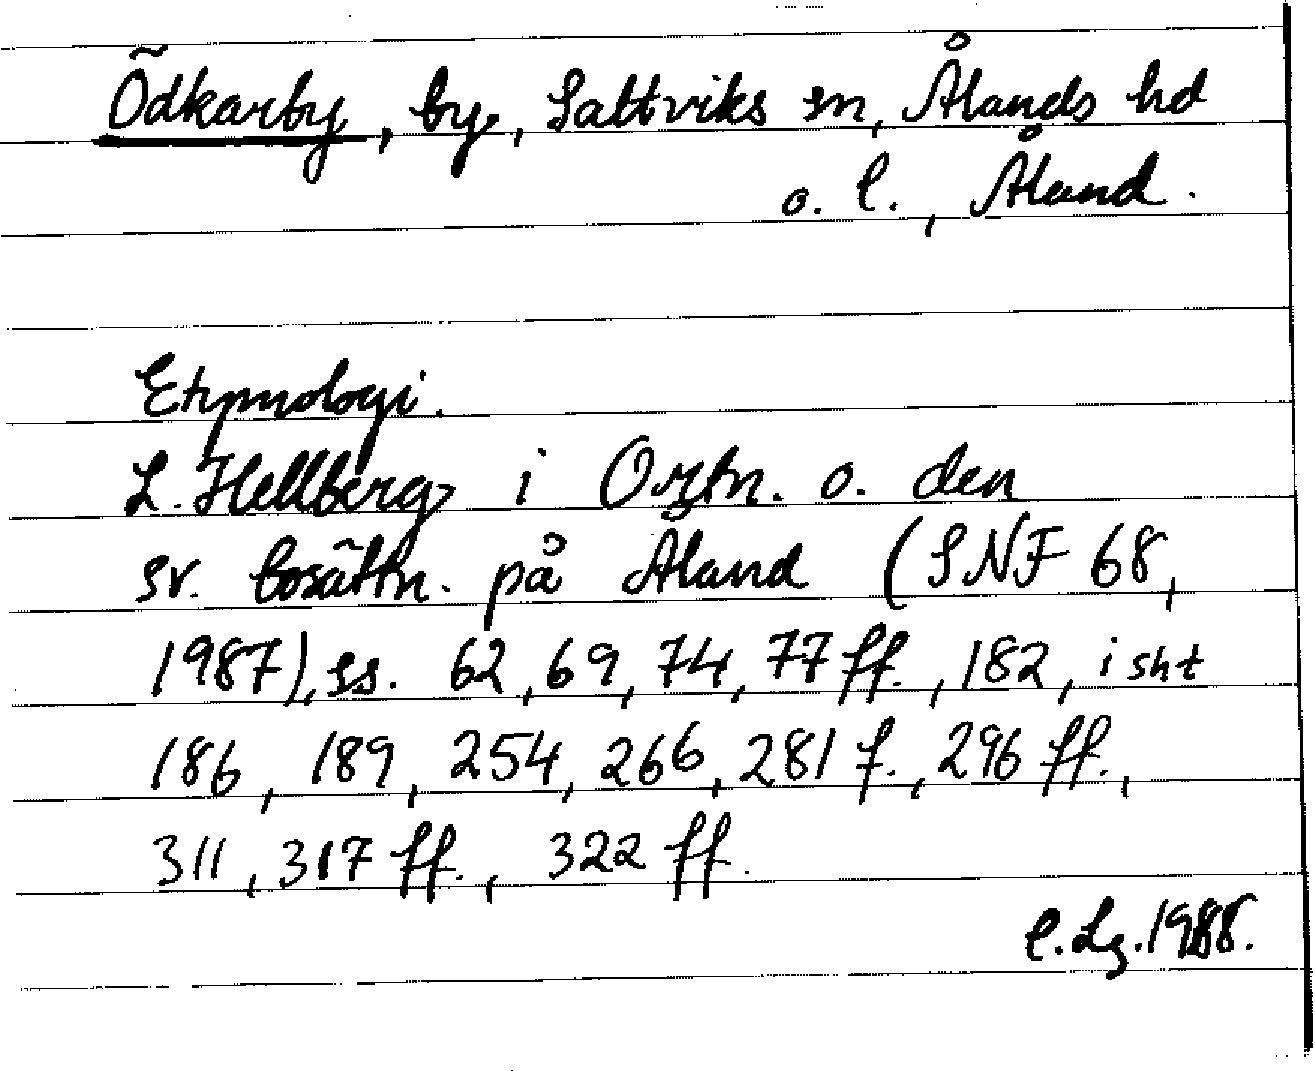 Ödkarby, by, Saltviks sn, Ålands hd
o. l., Åland.
Etymologi.
L. Hellberg i Ortn. o. den
sv. bosättn. på Åland (SNF 68,
1987), ss. 62, 69, 74, 77 ff., 182, isht
186, 189, 254, 266, 281 f., 296 ff.,
311, 317 ff., 322 ff.
C. Lg. 1988.